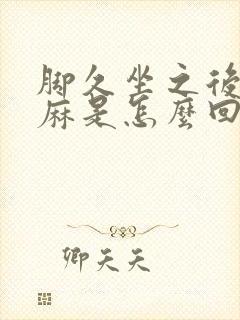 脚久坐之後
麻是怎麼回
卿天天